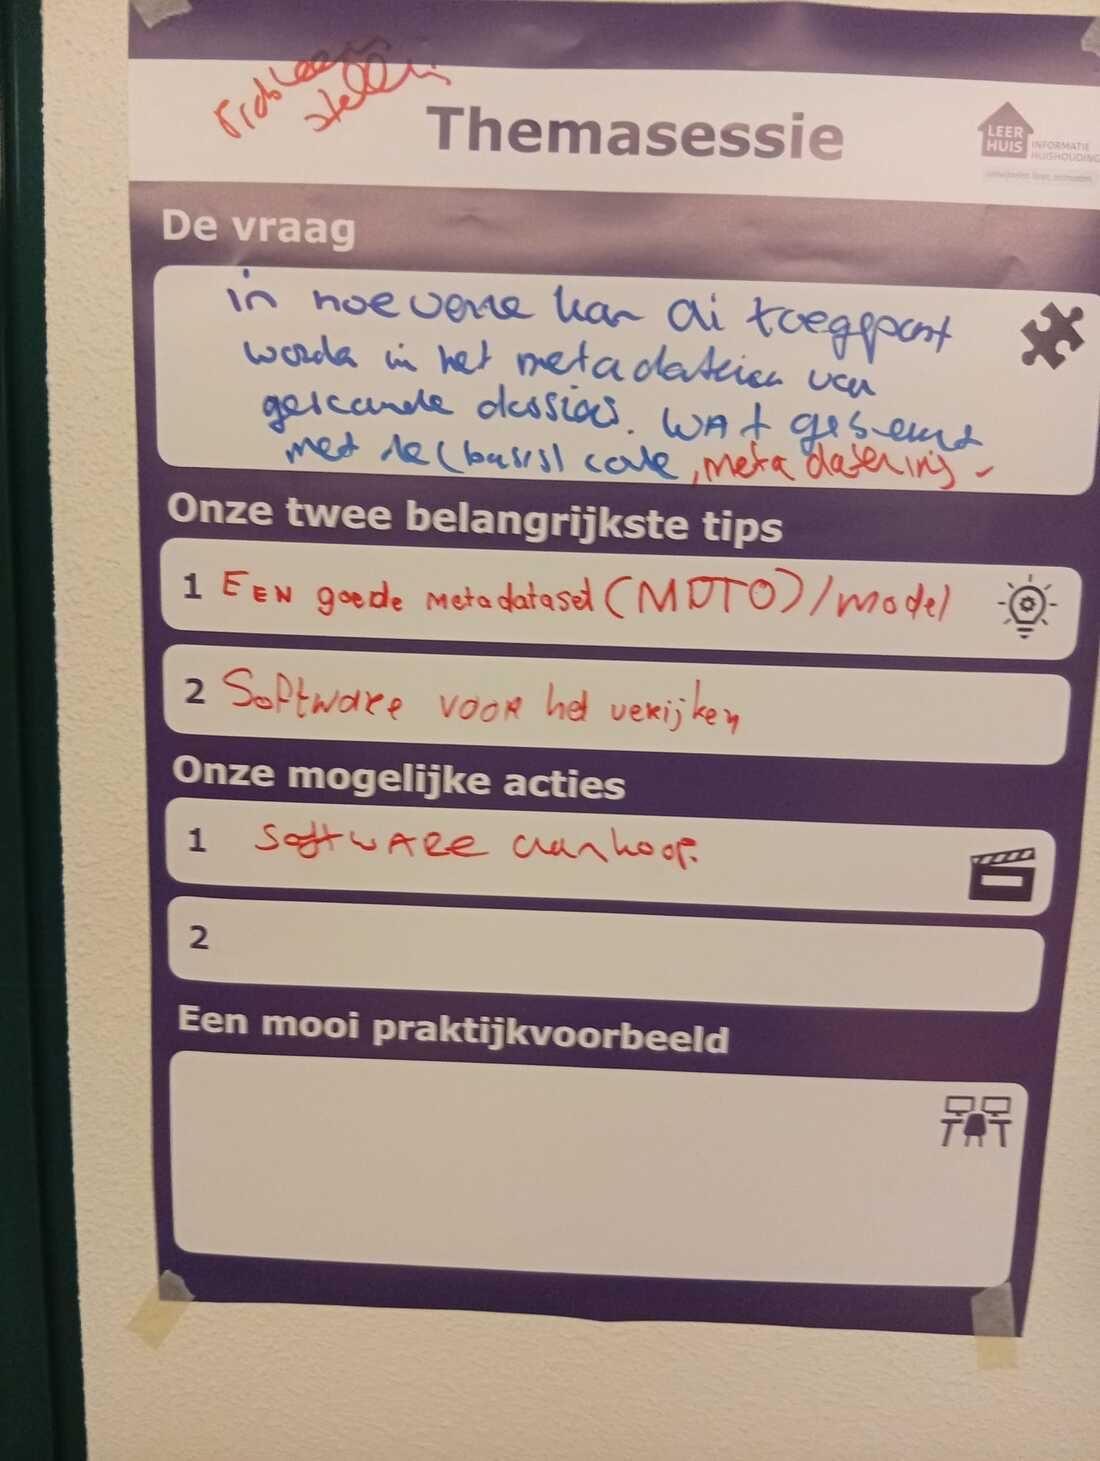 Probleem
stelling
Themasessie
LEER
HUIS
INFORMATIE
HUISHOUDING
De vraag
in hoeverre kan ai toegepast
worden in het metadateren van
gescande dossiers. WAt gebeurt
met de (basis) code, metadatering
Onze twee belangrijkste tips
1 EEN goede metadataset (MDTO)/model
2 Software voor het verrijken
Onze mogelijke acties
1 SoftWARE aankoop.
2
Een mooi praktijkvoorbeeld